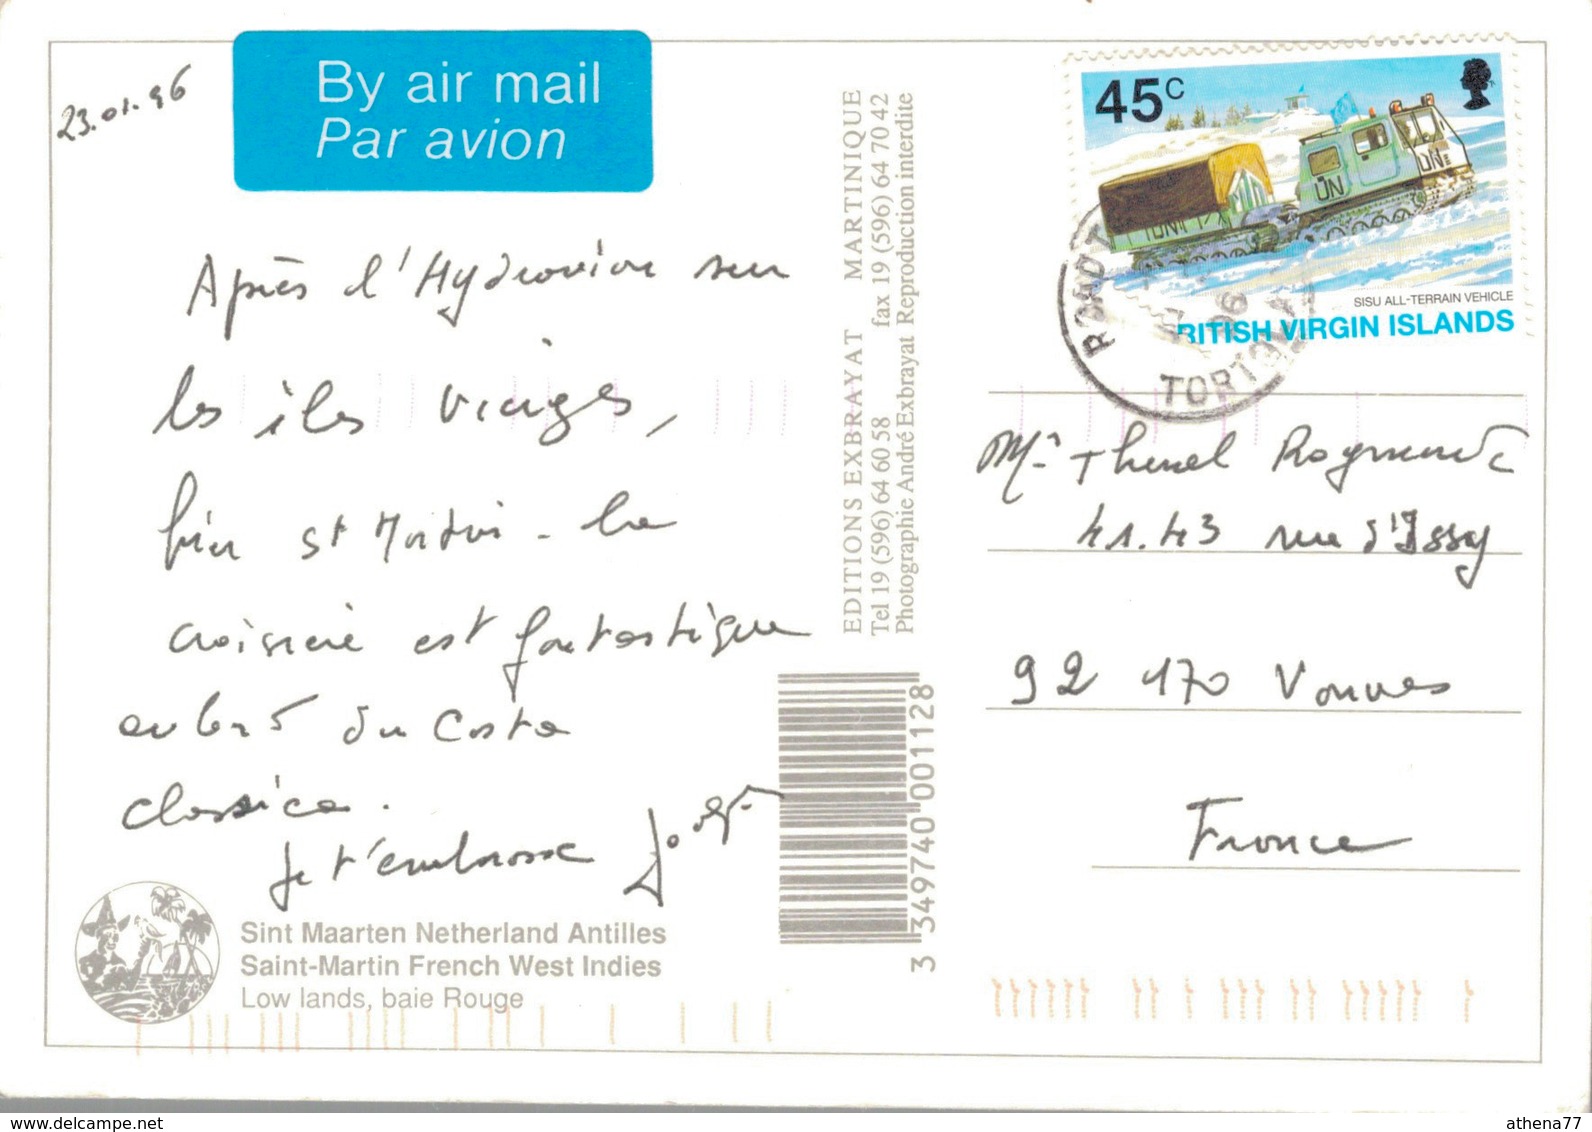 23.01.96
By air mail
Par avion
Après l'Hydravion sur
les îles vierges,
bien St Martin - la
croisière est fantastique
au bord du Costa
classica.
Je t'embrasse
Sint Maarten Netherland Antilles
Saint-Martin French West Indies
Low lands, baie Rouge
EDITIONS EXBRAYAT MARTINIQUE
Tel 19 (596) 64 60 58 fax 19 (596) 64 70 42
Photographie André Exbrayat Reproduction interdite
3 349740 001128
45c
UN
UN
SISU ALL-TERRAIN VEHICLE
BRITISH VIRGIN ISLANDS
ROAD T
96
TORTOLA
Me Thenel Raymonde
41.43 rue d'Issy
92 170 Vanves
France
athena77